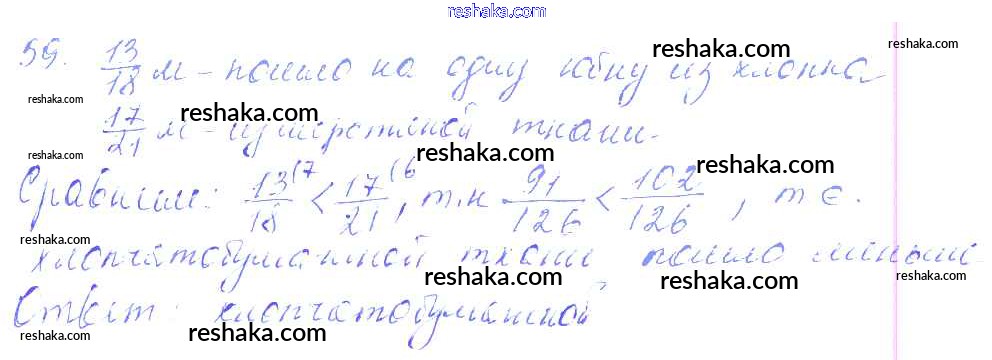 reshaka.com
59. 13/18 м - пошло на одну юбку из хлопка
reshaka.com
reshaka.com
reshaka.com
reshaka.com
17/21 м - из шерстяной ткани.
reshaka.com
reshaka.com
reshaka.com
reshaka.com
Сравним: 13(7/18 < 17(6/21, т.к 91/126 < 102/126, т е.
reshaka.com
reshaka.com
хлопчатобумажной ткани пошло меньше
reshaka.com
reshaka.com
reshaka.com
Ответ: хлопчатобумажной
reshaka.com
reshaka.com
reshaka.com